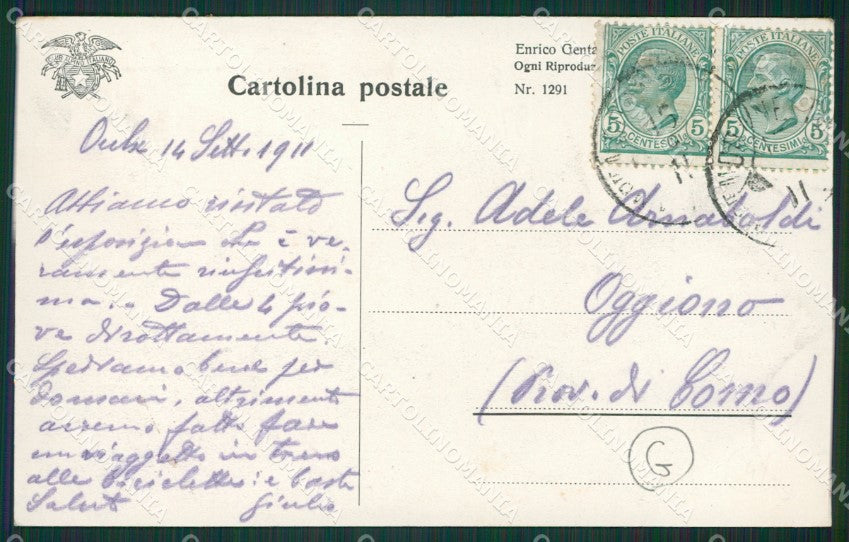 CLUB ALPINO ITALIANO
Cartolina postale
Enrico Genta
Ogni Riproduz
Nr. 1291
POSTE ITALIANE
5 CENTESIMI 5
POSTE ITALIANE
5 CENTESIMI 5
14 Sett. 1911
Abbiamo visitato
l'esposizione che è ve-
ramente
ma. Dalle 4 pio-
ve dirottamente.
Speriamo bene per
domani, altrimenti
avremo fatto fare
un viaggetto in treno
alle biciclette: e basta
Saluti Giulio
Sig. Adele Arnaboldi
Oggiono
(Prov. di Como)
G
CARTOLINOMANIA